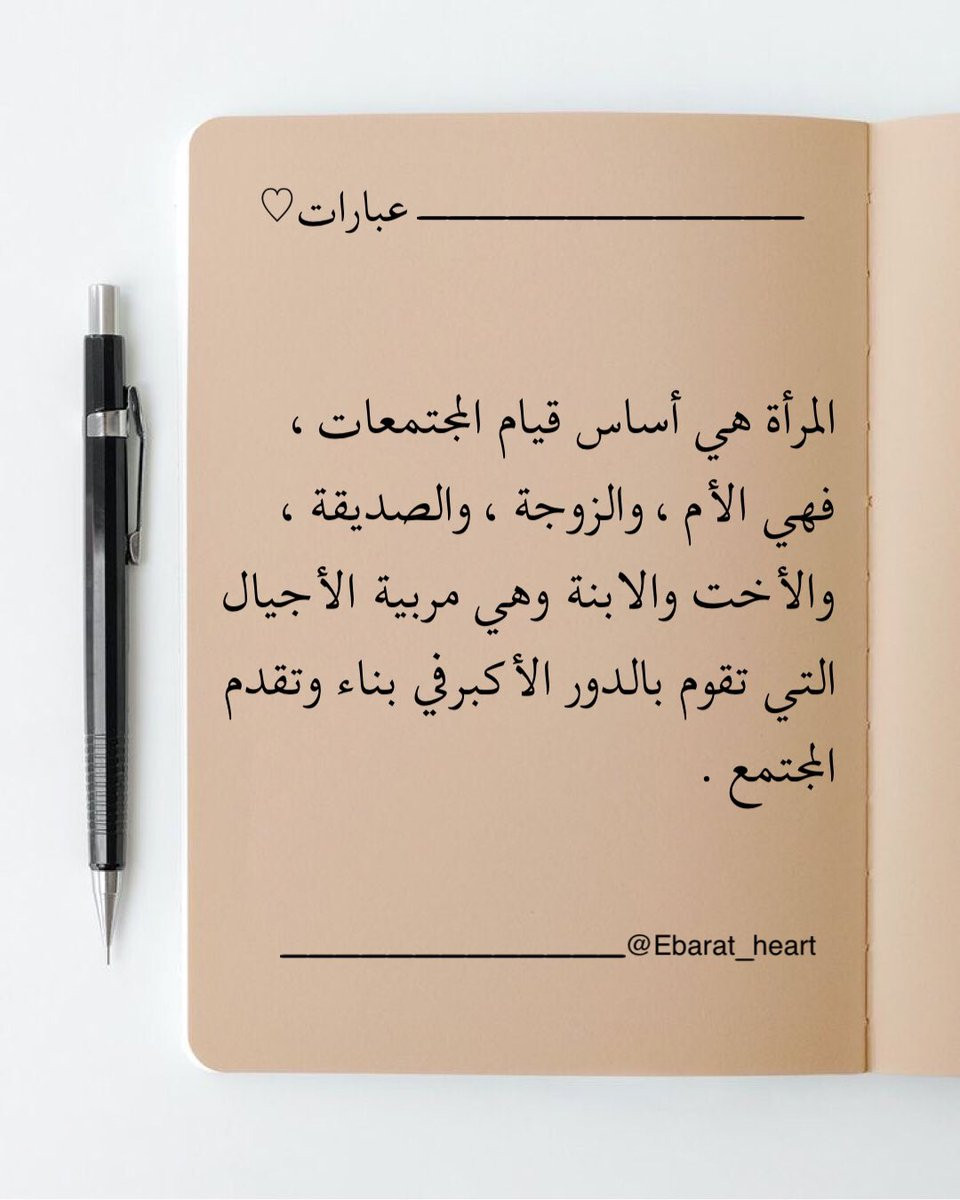 عبارات♡
المرأة هي أساس قيام المجتمعات ،
فهي الأم ، والزوجة ، والصديقة ،
والأخت والابنة وهي مربية الأجيال
التي تقوم بالدور الأكبرفي بناء وتقدم
المجتمع .
@Ebarat_heart